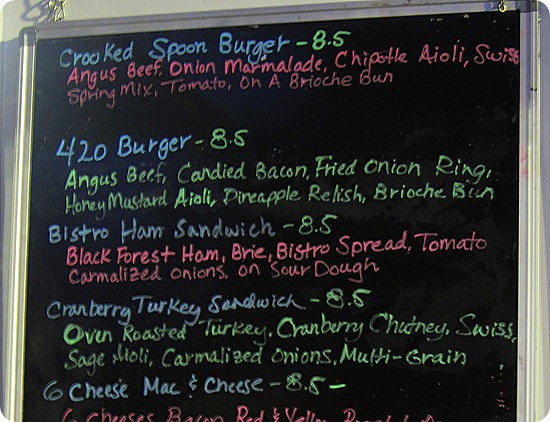 Crooked Spoon Burger - 8.5
Angus Beef, Onion Marmalade, Chipotle Aioli, Swiss
Spring Mix, Tomato, On A Brioche Bun
420 Burger - 8.5
Angus Beef, Candied Bacon, Fried Onion Ring,
Honey Mustard Aioli, Pineapple Relish, Brioche Bun
Bistro Ham Sandwich - 8.5
Black Forest Ham, Brie, Bistro Spread, Tomato
Carmalized onions, on Sour Dough
Cranberry Turkey Sandwich - 8.5
Oven Roasted Turkey, Cranberry Chutney, Swiss,
Sage Aioli, Carmalized Onions, Multi-Grain
6 Cheese Mac & Cheese - 8.5 -
6 Cheeses Bacon Red & Yellow